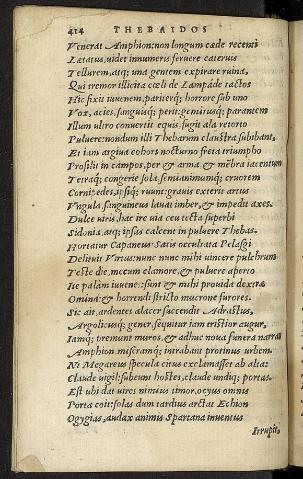 414 THEBAIDOS
Venerat Amphion: non longum cæde recenti
Lætatus, uidet innumeris feruere cateruis
Tellurem, atq; una gentem expirare ruina,
Qui tremor illicita cœli de Lampade tactos
Hic fixit iuuenem, pariterq; horrore sub uno
Vox, acies, sanguisq; perit: gemitusq; parantem
Illum ultro conuertit equus. fugit ala retorto
Puluere: nondum illi Thebarum claustra subibant,
Et iam argiua cohors nocturno freta triumpho
Prosilit in campos, per & arma & mēbra iacentum
Tetraq; congerie sola, semianimumq; cruorem
Cornipedes, ipsiq; ruunt: grauis exterit artus
Vngula, sanguineus lauat imber, & impedit axes.
Dulce uiris, hac ire uia ceu tecta superbi
Sidonia, atq; ipsas calcent in puluere Thebas.
Hortatur Capaneus: Satis occultata Pelasgi
Delituit Virtus: nunc nunc mihi uincere pulchrum
Teste die, mecum clamore, & puluere aperto
Ite palàm iuuene: sunt & mihi prouida dextræ
Omina: & horrendi stricto mucrone furores.
Sic ait, ardentes alacer succendit Adrastus,
Argolicusq; gener, sequitur iam tristior augur,
Iamq; premunt muros, & adhuc noua funera narrat
Amphion. miseramq; intrabant protinus urbem.
Ni Megareus specula citus exclamasset ab alta:
Claude uigil: subeunt hostes, claude undiq; portas.
Est ubi dat uires nimius timor, ocyus omnis
Porta coit: solas dum tardius arctat Echion
Ogygias, audax animis Spartana iuuentus
Irrupit,